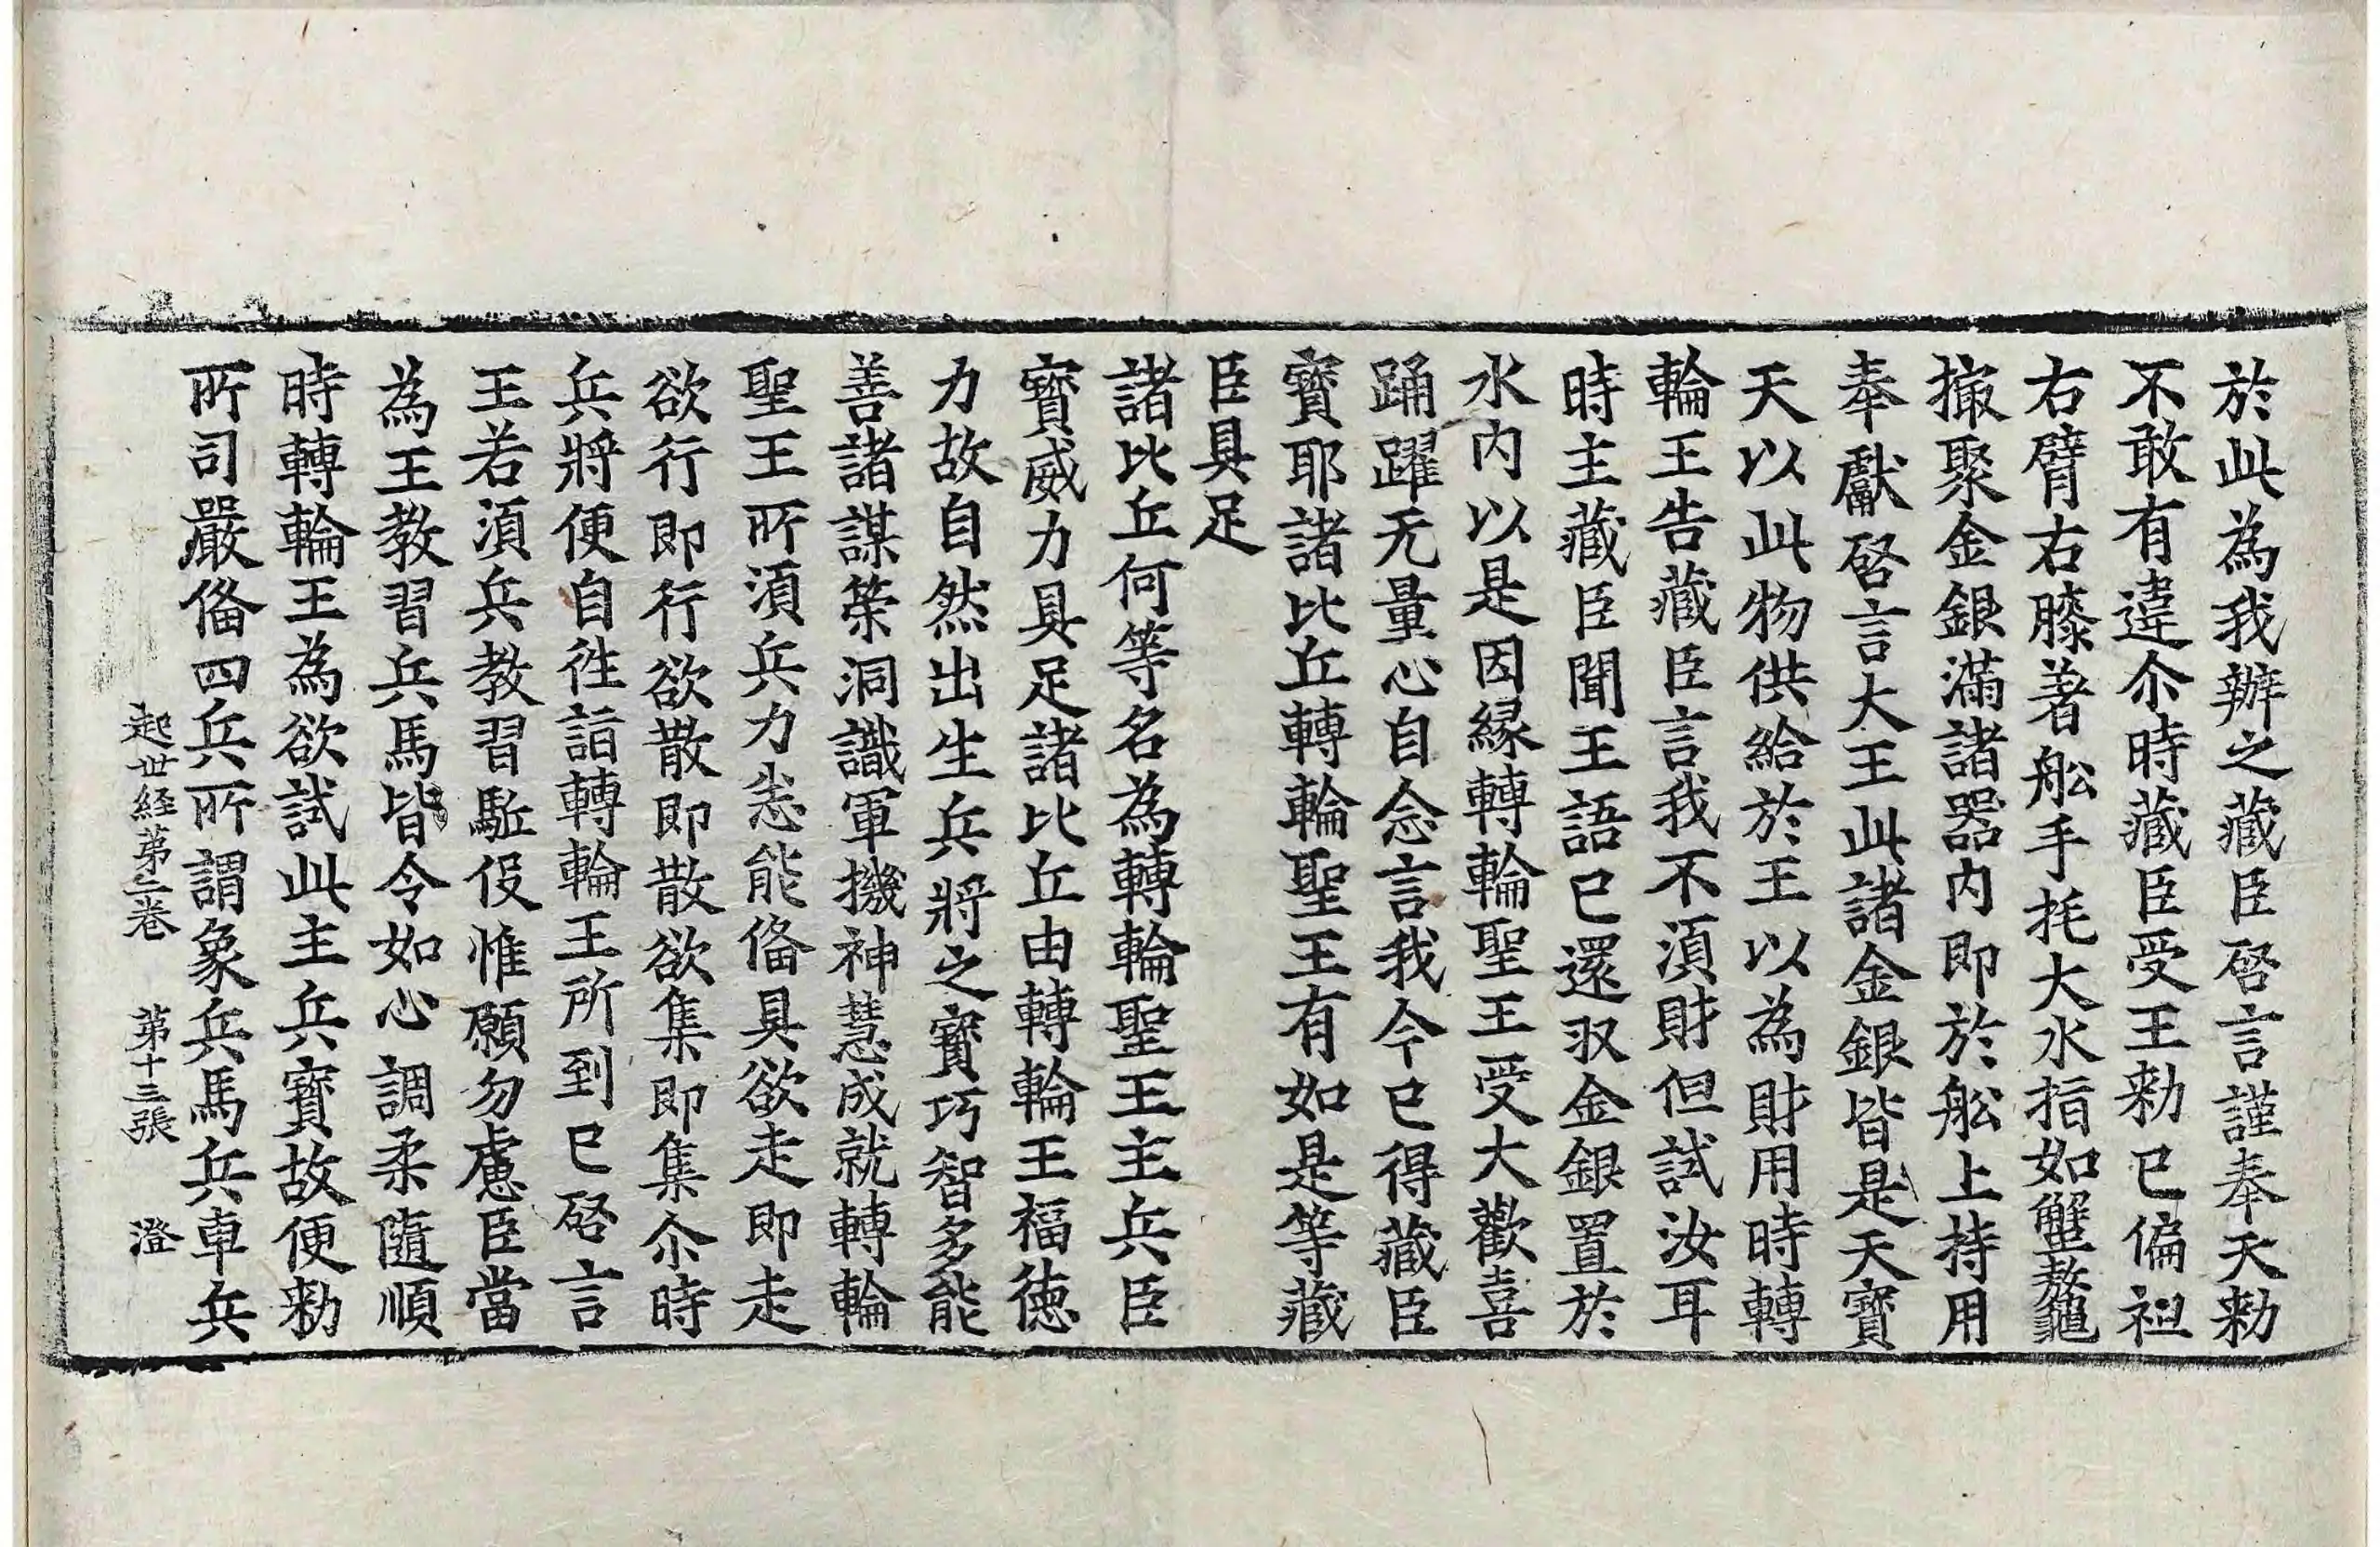 於此為我辦之藏臣啓言謹奉天勑
不敢有違尒時藏臣受王勑已偏袒
右臂右膝著舩手撓大水指如蟹螯龜
撮聚金銀滿諸器内即於舩上持用
奉獻啓言大王此諸金銀皆是天寶
天以此物供給於王以為財用時轉
輪王告藏臣言我不湏財但試汝耳
時主藏臣聞王語已還収金銀置於
水内以是因縁轉輪聖王受大歡喜
踊躍无量心自念言我今已得藏臣
寳耶諸比丘轉輪聖王有如是等藏
臣具足
諸比丘何等名為轉輪聖王主兵臣
寳威力具足諸比丘由轉輪王福徳
力故自然出生兵將之寳巧智多能
善諸謀策洞識軍機神慧成就轉輪
聖王所湏兵力悉能俻具欲走即走
欲行即行欲散即散欲集即集尒時
兵將便自往詣轉輪王所到已啓言
王若湏兵教習駈役惟願勿慮臣當
為王教習兵馬皆令如心調柔隨順
時轉輪王為欲試此主兵寳故便勑
所司嚴俻四兵所謂象兵馬兵車兵
起世経苐二卷　苐十三張　澄